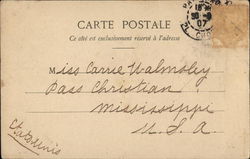 CARTE POSTALE
Ce côté est exclusivement réservé à l'adresse
Miss Carrie Walmsley
Pass Christian
Mississippi
U.S.A.
07